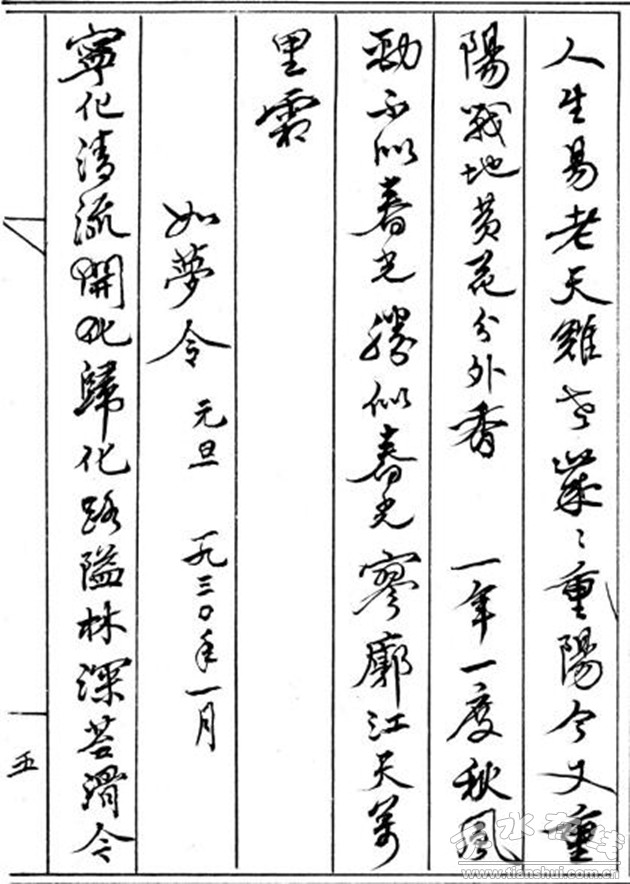 人生易老天難老歲〻重陽今又重
陽戰地黄花分外香　一年一度秋風
勁不似春光勝似春光寥廓江天萬
里霜
如夢令 元旦 一九三〇年一月
寧化清流開化歸化路隘林深苔滑今
五
www.tianshui.com.cn